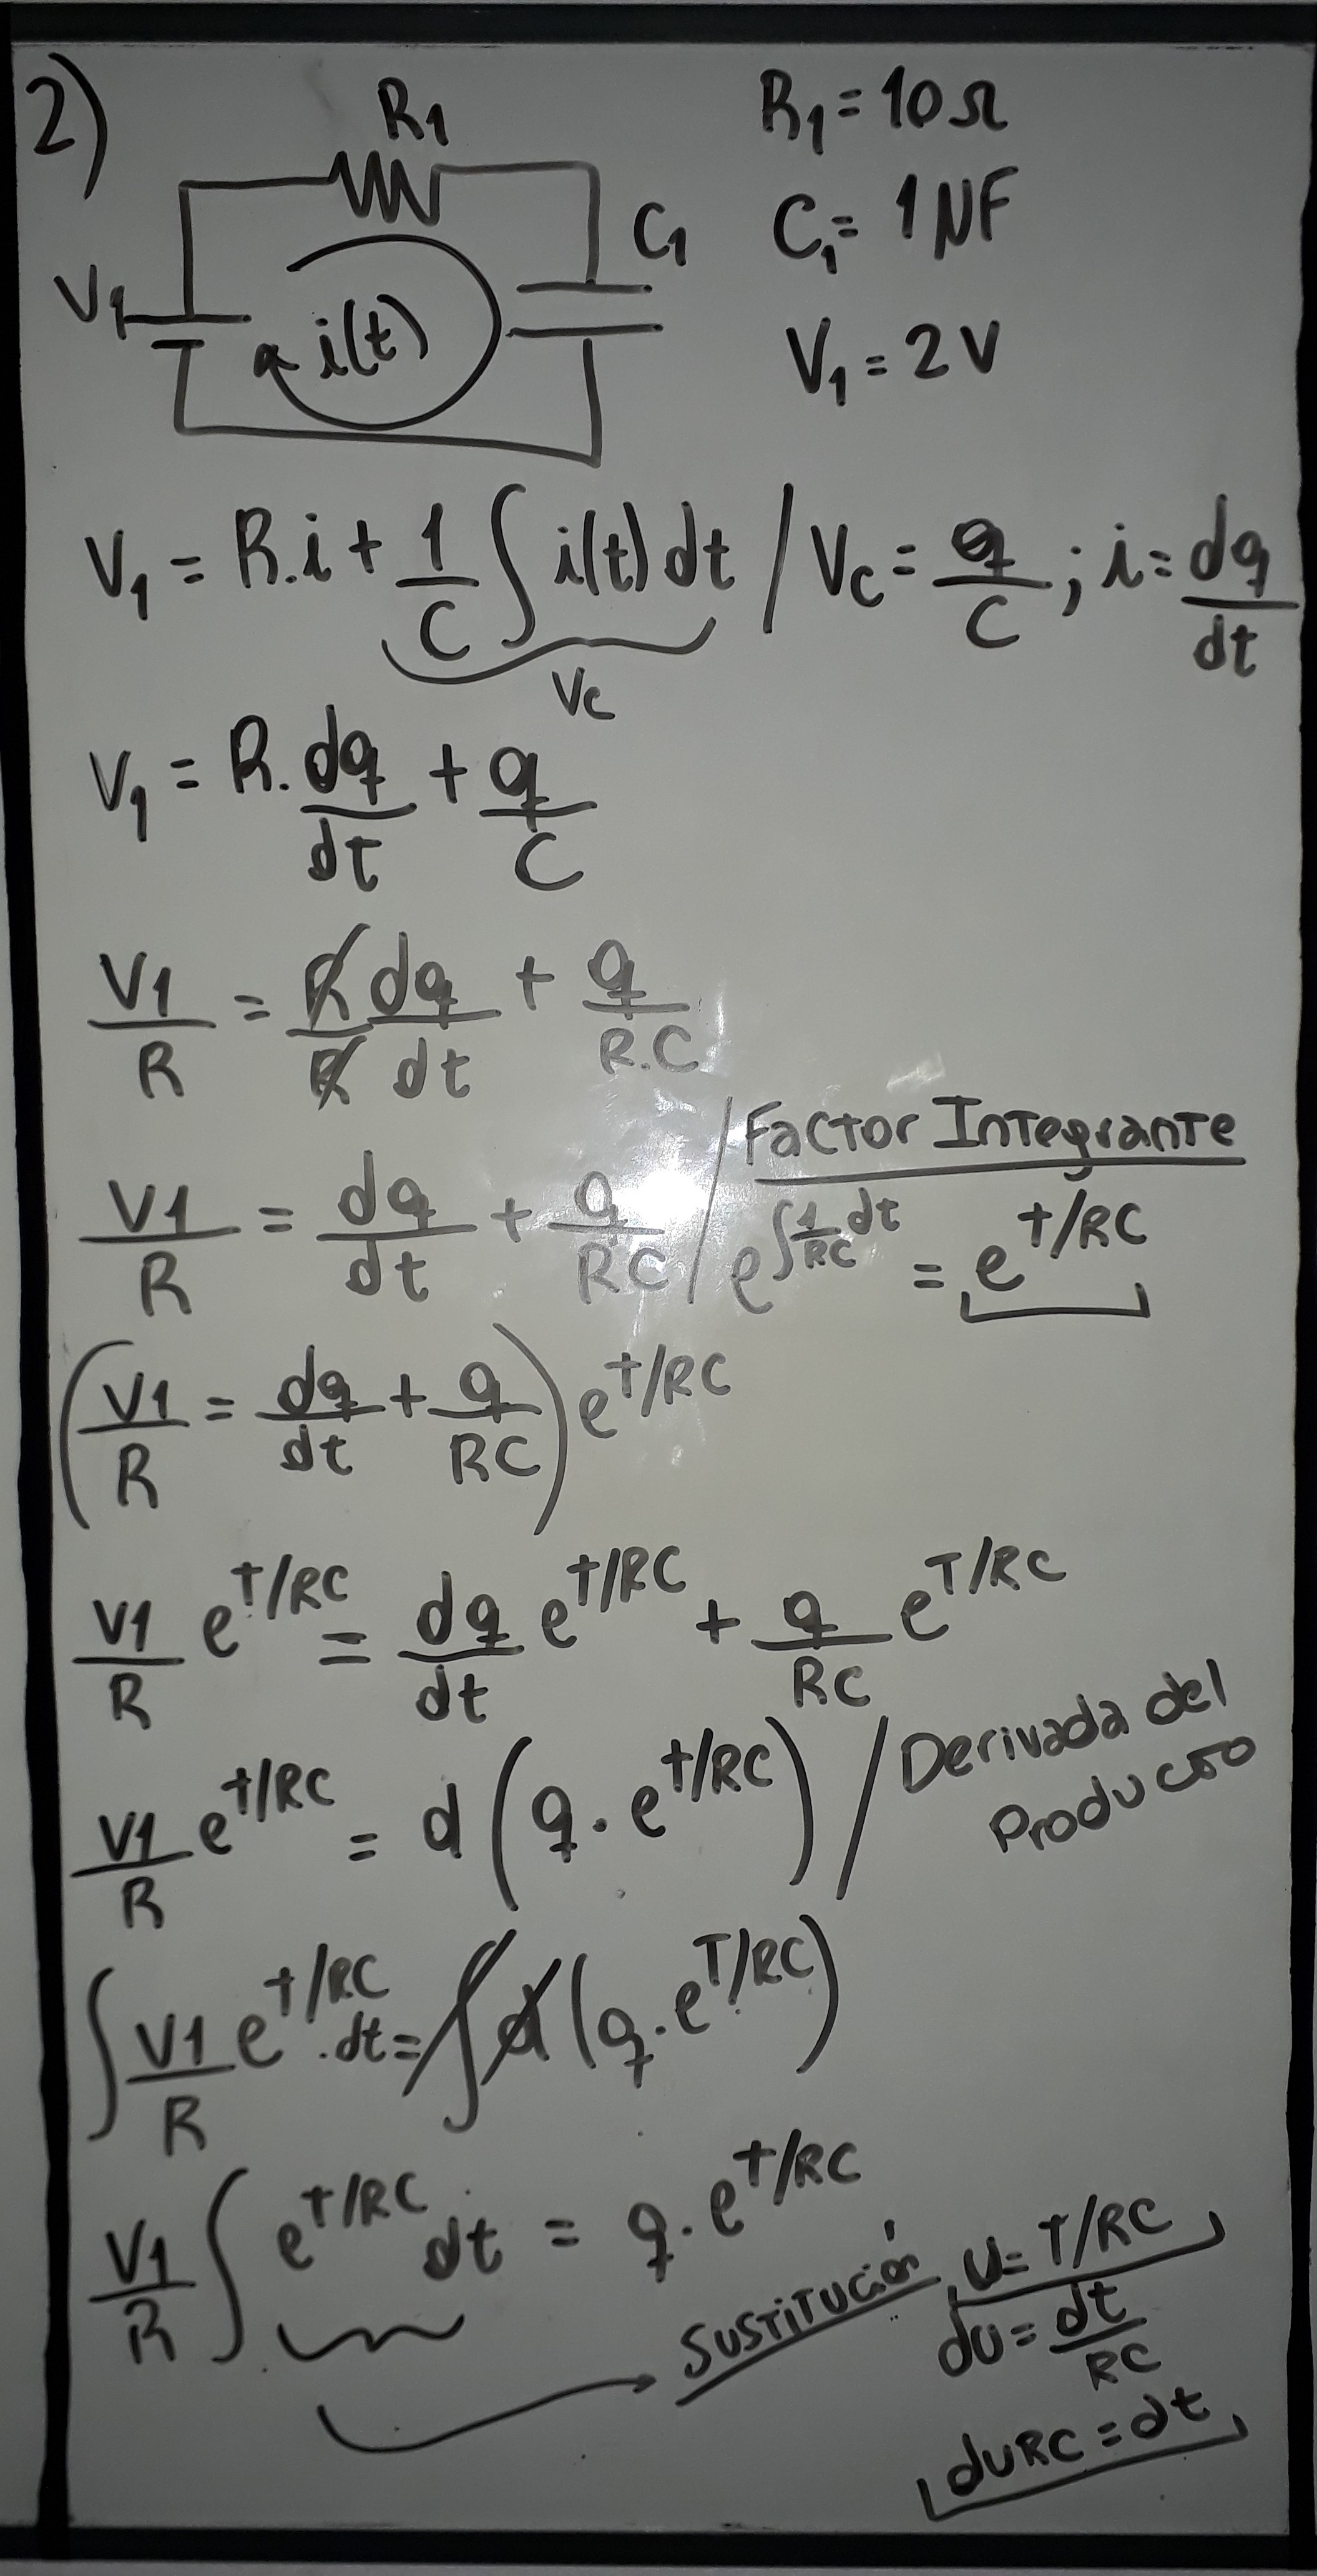 2)
R1
R1 = 10Ω
C1
C1 = 1NF
V1
i(t)
V1 = 2V
V1 = R.i + 1/C ∫ i(t) dt / Vc = q/C ; i = dq/dt
Vc
V1 = R. dq/dt + q/C
V1/R = R/R dq/dt + q/R.C
Factor Integrante
V1/R = dq/dt + q/RC / e^∫1/RC dt = e^t/RC
(V1/R = dq/dt + q/RC) e^t/RC
V1/R e^t/RC = dq/dt e^t/RC + q/RC e^T/RC
V1/R e^t/RC = d(q.e^t/RC) / Derivada del Producto
∫ V1/R e^t/RC .dt = ∫ d(q.e^T/RC)
V1/R ∫ e^t/RC dt = q.e^t/RC
Sustitución
U = T/RC
dU = dt/RC
dURC = dt